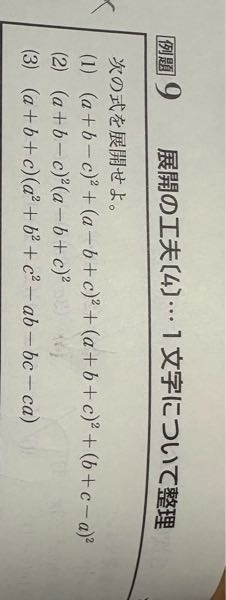 例題 9 展開の工夫〔4〕… 1 文字について整理
次の式を展開せよ。
(1) (a+b−c)²+(a−b+c)²+(a+b+c)²+(b+c−a)²
(2) (a+b−c)²(a−b+c)²
(3) (a+b+c)(a²+b²+c²−ab−bc−ca)